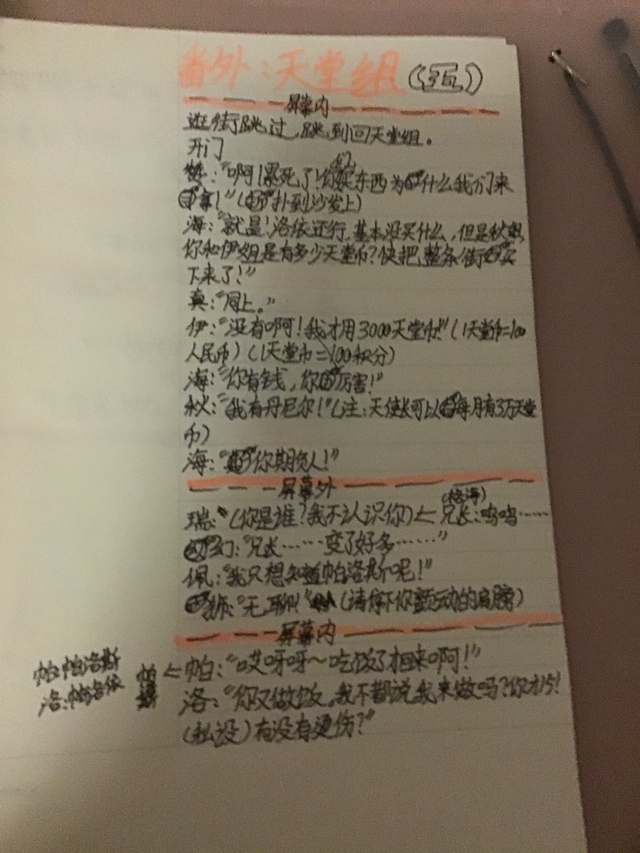 番外:天堂组
屏幕内
逛街跳过,跳到回天堂组。
开门
赞:“啊!累死了!你买东西为什么我们来
(扑到沙发上)
海:“就是!洛依还行,基本没买什么,但是秋姐
你和伊姐是有多少天堂币?快把整条街买
下来了!”
真:“同上。”
伊:“没有啊!我才用3000天堂币!”(1天堂币=100
人民币)(1天堂币=100积分)
海:“你有钱,你厉害!”
秋:“我有丹尼尔!”(注:天使长可以每月有3万天堂
币)
海:“你期负人!”
屏幕外
瑞:“(你是谁?我不认识你)←兄长:呜呜……
幻:“兄长……变了好多……”
佩:“我只想知道帕洛斯呢!”
“无聊!”(请停下你颤动的肩膀)
屏幕内
帕:帕洛斯
洛:帕洛依
←帕:“哎呀呀~吃饭了相来啊!”
洛:“你又做饭。我不都说我来做吗?你才15!
(私设)有没有烫伤?”